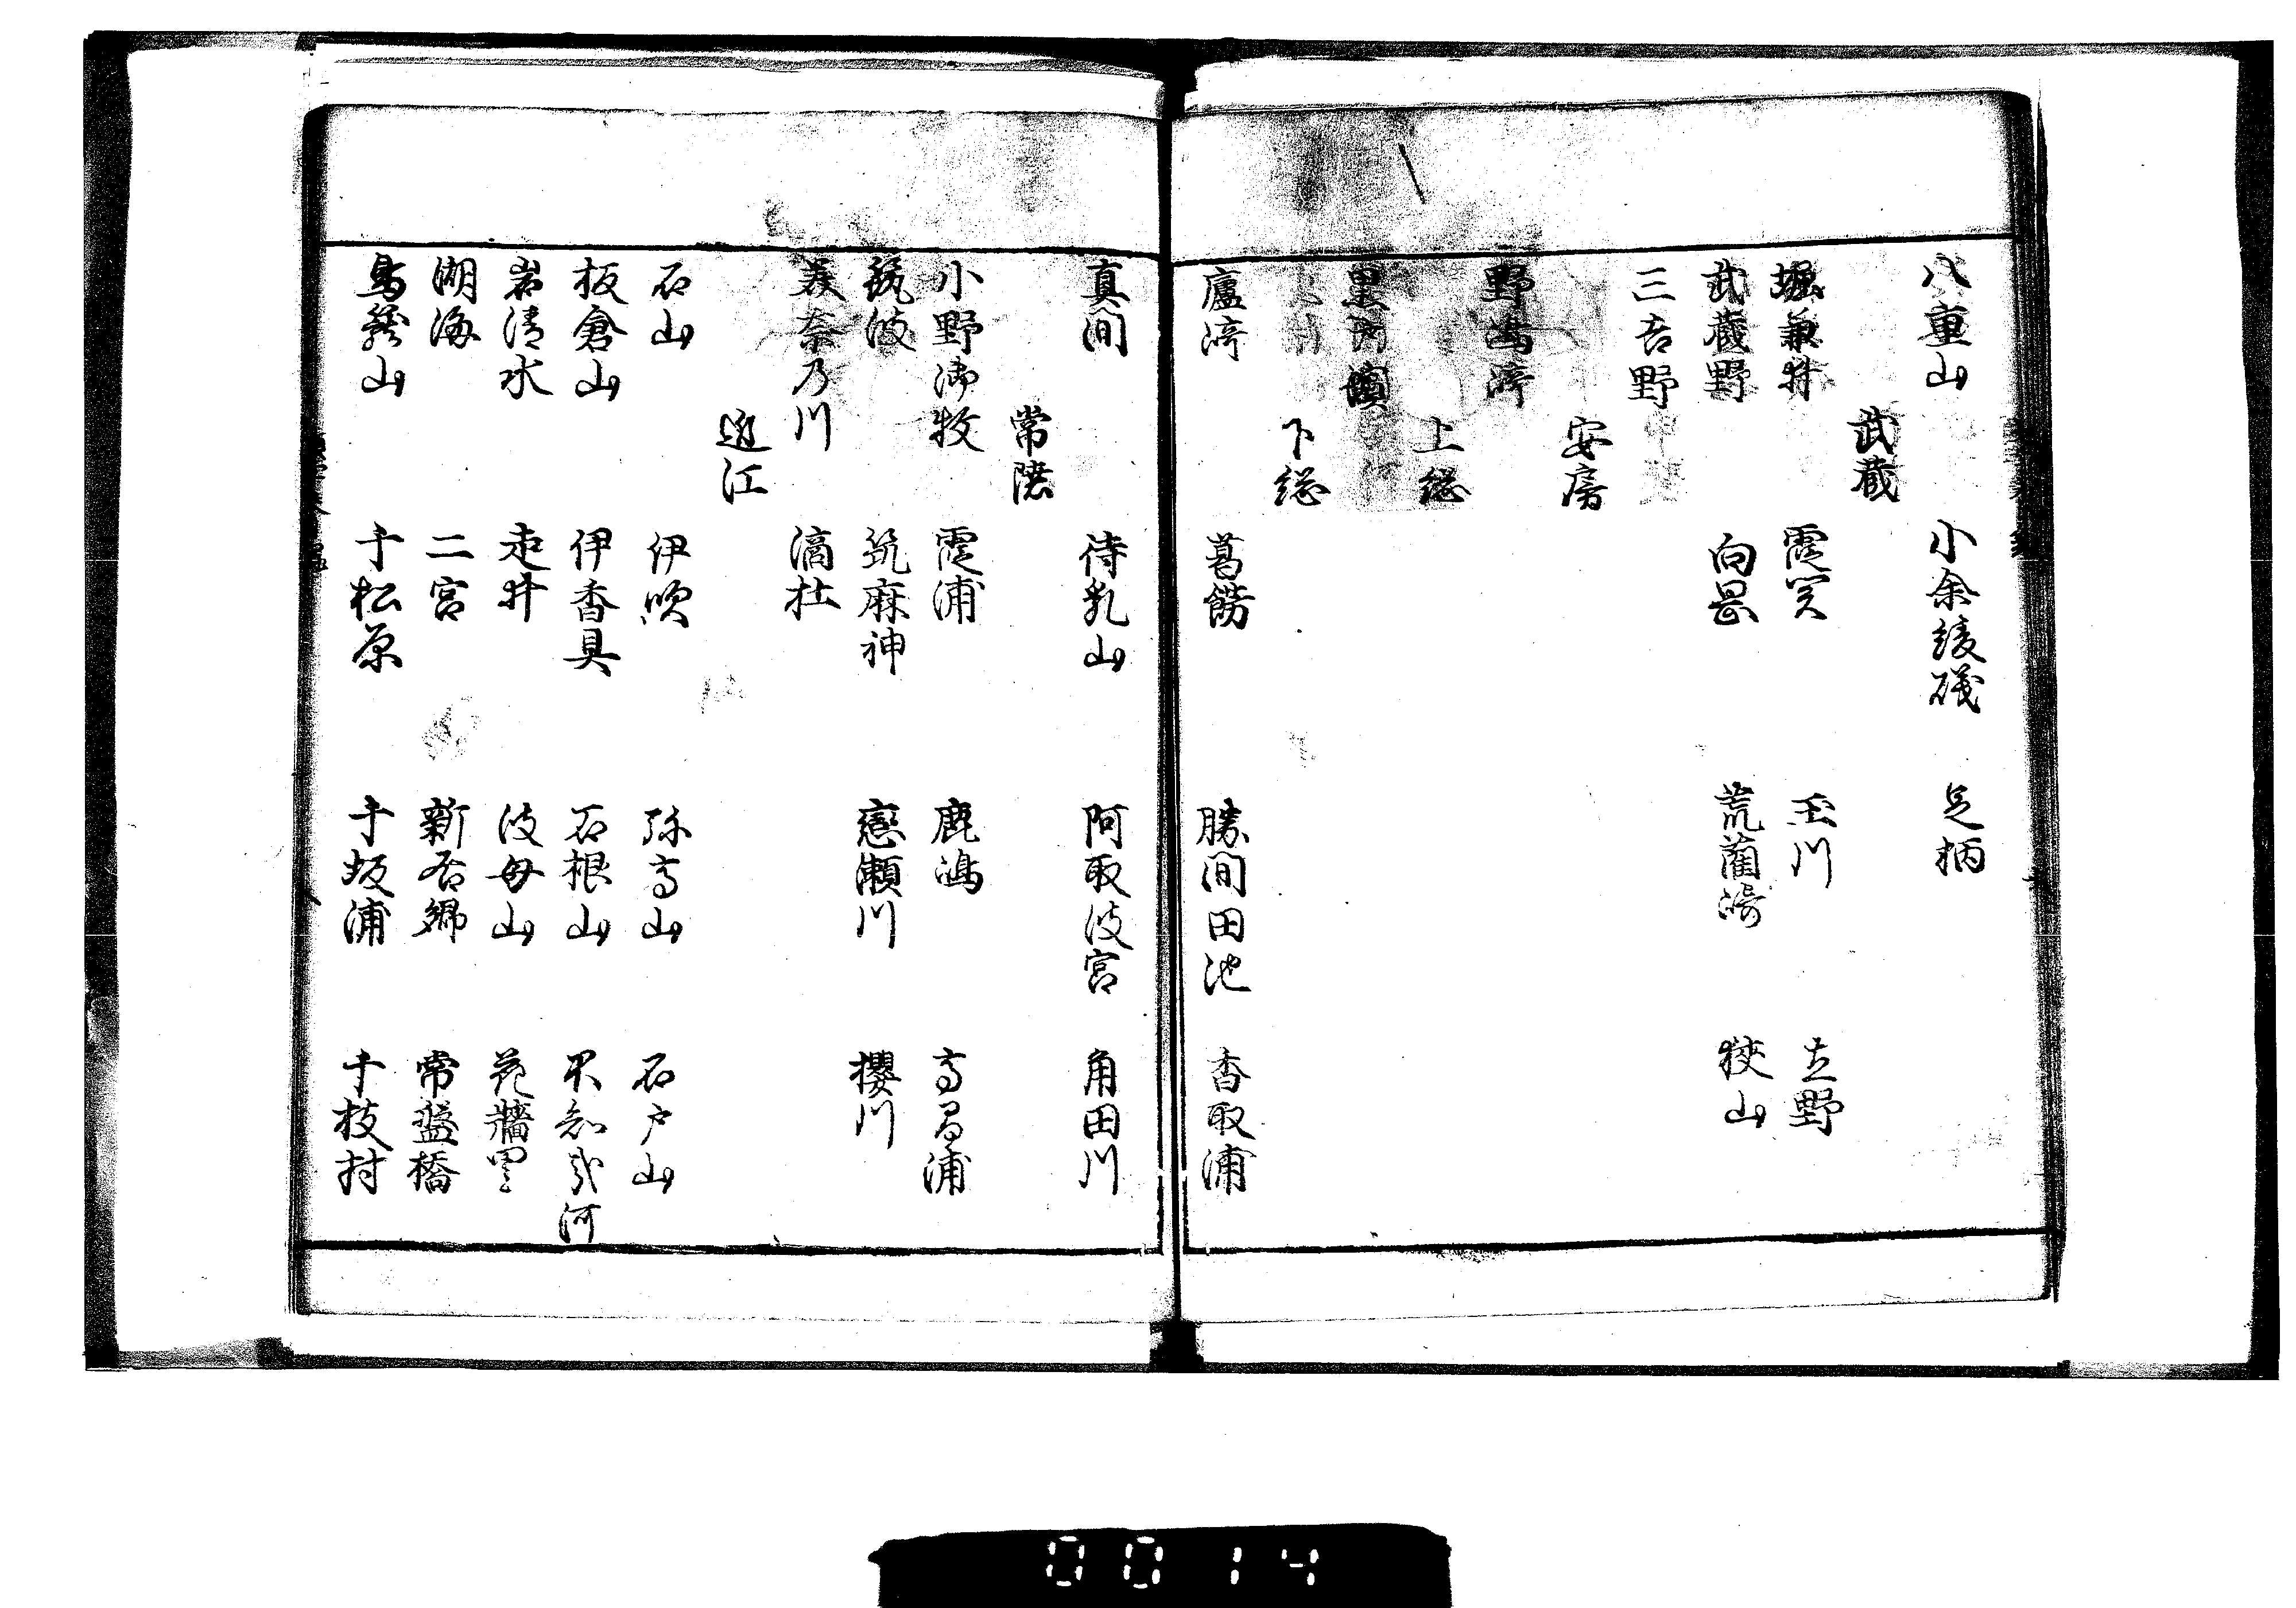 八重山 小余綾磯 足柄
武蔵
堀兼井 霞関 玉川 立野
武蔵野 向岡 荒藺崎 狭山
三吉野
安房
野嶋崎
上総
黒戸濱
下総
廬崎 葛餝 勝間田池 香取浦
真間 待乳山 阿取波宮 角田川
常陸
小野御牧 霞浦 鹿嶋 高間浦
筑波 筑麻神 恋瀬川 櫻川
美奈乃川 滴杜
近江
石山 伊吹 弥高山 石戸山
板倉山 伊香具 石根山 不知哉河
岩清水 走井 波母山 花墻里
湖海 二宮 新居郷 常盤橋
鳥籠山 千松原 千坂浦 千枝村
0014